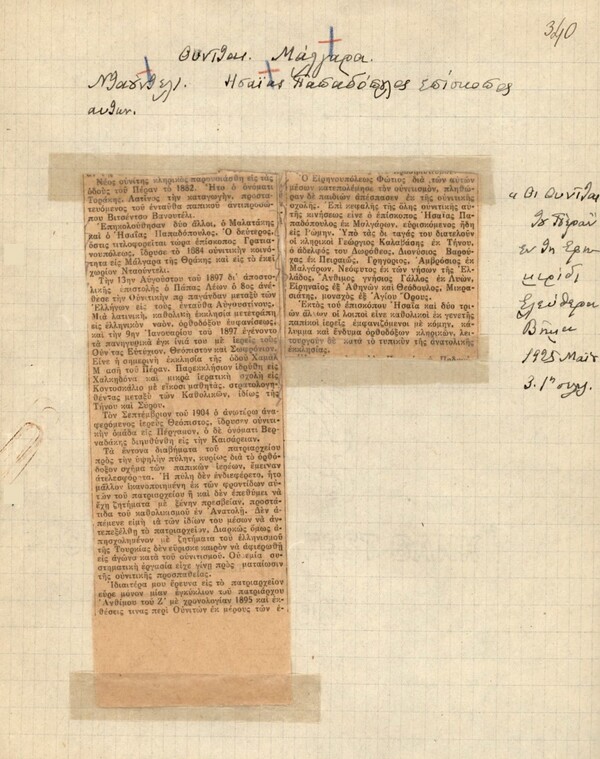 340
Ουνῖται. Μάλγαρα.
Νταουτελί. Ησαΐας Παπαδόπουλος Επίσκοπος
αυτών.
Νέος οὐνίτης κληρικὸς παρουσιάσθη εἰς τὰς
ὁδοὺς τοῦ Πέραν τὸ 1882. Ἦτο ὁ ὀνόματι
Τοράκης, Λατῖνος τὴν καταγωγήν, προστα-
τευόμενος τοῦ ἐνταῦθα παπικοῦ ἀντιπροσώ-
που Βιτσέντσο Βανουτέλι.
Ἐπηκολούθησαν δύο ἄλλοι, ὁ Μολατάκης
καὶ ὁ Ἡσαΐας Παπαδόπουλος. Ὁ δεύτερος,
ὅστις τιτλοφορεῖται τώρα ἐπίσκοπος Γρατια-
νουπόλεως, ἵδρυσε τὸ 1884 οὐνιτικὴν κοινό-
τητα εἰς Μάλγαρα τῆς Θρᾴκης καὶ εἰς τὸ ἐκεῖ
χωρίον Νταουντέλι.
Τὴν 13ην Αὐγούστου τοῦ 1897 δι᾽ ἀποστο-
λικῆς ἐπιστολῆς ὁ Πάπας Λέων ὁ 8ος ἀνέ-
θεσε τὴν Οὐνιτικὴν πρ παγάνδαν μεταξὺ τῶν
Ἑλλήνων εἰς τοὺς ἐνταῦθα Αὐγουστίνους.
Μιὰ λατινική, καθολικὴ ἐκκλησία μετετράπη
εἰς ἑλληνικὸν ναόν, ὀρθοδόξου ἐμφανίσεως,
καὶ τὴν 9ην Ἰανουαρίου τοῦ 1897 ἐγένοντο
τὰ πανηγυρικὰ ἐγκ ίνιά του μὲ ἱερεῖς τοὺς
Οὐν τας Εὐτύχιον, Θεόπιστον καὶ Σωφρόνιον.
Εἶνε ἡ σημερινὴ ἐκκλησία τῆς ὁδοῦ Χαμὰλ
Μ ασὴ τοῦ Πέραν. Παρεκκλήσιον ἱδρύθη εἰς
Χαλκηδόνα καὶ μικρὰ ἱερατικὴ σχολὴ εἰς
Κοντοσκάλιο μὲ εἴκοσι μαθητάς, στρατολογη-
θέντας μεταξὺ τῶν Καθολικῶν, ἰδίως τῆς
Τήνου καὶ Σύρου.
Τὸν Σεπτέμβριον τοῦ 1904 ὁ ἀνωτέρω ἀνα-
φερόμενος ἱερεὺς Θεόπιστος, ἵδρυσεν οὐνιτι-
κὴν ὁμάδα εἰς Πέργαμον, ὁ δὲ ὀνόματι Βερ-
ναδάκης διηυθύνθη εἰς τὴν Καισάρειαν.
Τὰ ἔντονα διαβήματα τοῦ πατριαρχείου
πρὸς τὴν ὑψηλὴν πύλην, κυρίως διὰ τὸ ὀρθό-
δοξον σχῆμα τῶν παπικῶν ἱερέων, ἔμειναν
ἀτελεσφόρητα. Ἡ πύλη δὲν ἐνδιεφέρετο, ἦτο
μᾶλλον ἱκανοποιημένη ἐκ τῶν φροντίδων αὐ-
τῶν τοῦ πατριαρχείου ἢ καὶ δὲν ἐπεθύμει νὰ
ἔχῃ ζητήματα μὲ ξένην πρεσβείαν, προστά-
τιδα τοῦ καθολικισμοῦ ἐν Ἀνατολῇ. Δὲν ἀ-
πέμενε εἰμὴ ιὰ τῶν ἰδίων του μέσων νὰ ἀν-
τεπεξέλθῃ τὸ πατριαρχεῖον. Διαρκῶς ὅμως ἀ-
πησχολημένον μὲ ζητήματα τοῦ ἑλληνισμοῦ
τῆς Τουρκίας δὲν εὕρισκε καιρὸν νὰ ἀφιερωθῇ
εἰς ἀγῶνα κατὰ τοῦ οὐνιτισμοῦ. Οὐ εμία συ-
στηματικὴ ἐργασία εἶχε γίνῃ πρὸς ματαίωσιν
τῆς οὐνιτικῆς προσπαθείας.
Ἰδιαιτέρα μου ἔρευνα εἰς τὸ πατριαρχεῖον
εὗρε μόνον μίαν ἐγκύκλιον τοῦ πατριάρχου
Ἀνθίμου τοῦ Ζ´ μὲ χρονολογίαν 1895 καὶ ἐκ-
θέσεις τινας περὶ Οὐνιτῶν ἐκ μέρους τῶν ἐ-
Ὁ Εἰρηνουπόλεως Φώτιος διὰ τῶν αὐτῶν
μέσων κατεπολέμησε τὸν οὐνιτισμόν, πληθὼρ
δὲ παιδίων ἀπέσπασεν ἐκ τῆς οὐνιτικῆς
σχολῆς. Ἐπὶ κεφαλῆς τῆς ὅλης οὐνιτικῆς αὐ-
τῆς κινήσεως εἶνε ὁ ἐπίσκοπος Ἡσαΐας Πα-
παδόπουλος ἐκ Μαλγάρων, εὑρισκόμενος ἤδη
εἰς Ρώμην. Ὑπὸ τὰς δι ταγάς του διατελοῦν
οἱ κληρικοὶ Γεώργιος Καλαβάσης ἐκ Τήνου,
ὁ ἀδελφός του Δωρόθεος, Διονύσιος Βαρού-
χας ἐκ Πειραιῶς, Γρηγόριος, Ἀμβρόσιος ἐκ
Μαλγάρων, Νεόφυτος ἐκ τῶν νήσων τῆς Ἑλ-
λάδος, Ἄνθιμος γνήσιος Γάλλος ἐκ Λυών,
Εἰρηναῖος ἐξ Ἀθηνῶν καὶ Θεόδουλος, Μικρα-
σιάτης, μοναχὸς ἐξ Ἁγίου Ὄρους.
Ἐκτὸς τοῦ ἐπισκόπου Ἡσαΐα καὶ δύο τρι-
ῶν ἄλλων οἱ λοιποὶ εἶνε καθολικοὶ ἐκ γενετῆς
παπικοὶ ἱερεῖς ἐμφανιζόμενοι μὲ κόμην, κά-
λυμμα καὶ ἔνδυμα ὀρθοδόξων κληρικῶν, λει-
τουργοῦν δὲ κατὰ τὸ τυπικὸν τῆς ἀνατολικῆς
ἐκκλησίας.
« Οι Ουνίται
του Πέραν
εν τη Εφη-
μερίδι
Ελεύθερον
Βήμα
1925 Μαΐου
3. 1η σελ.